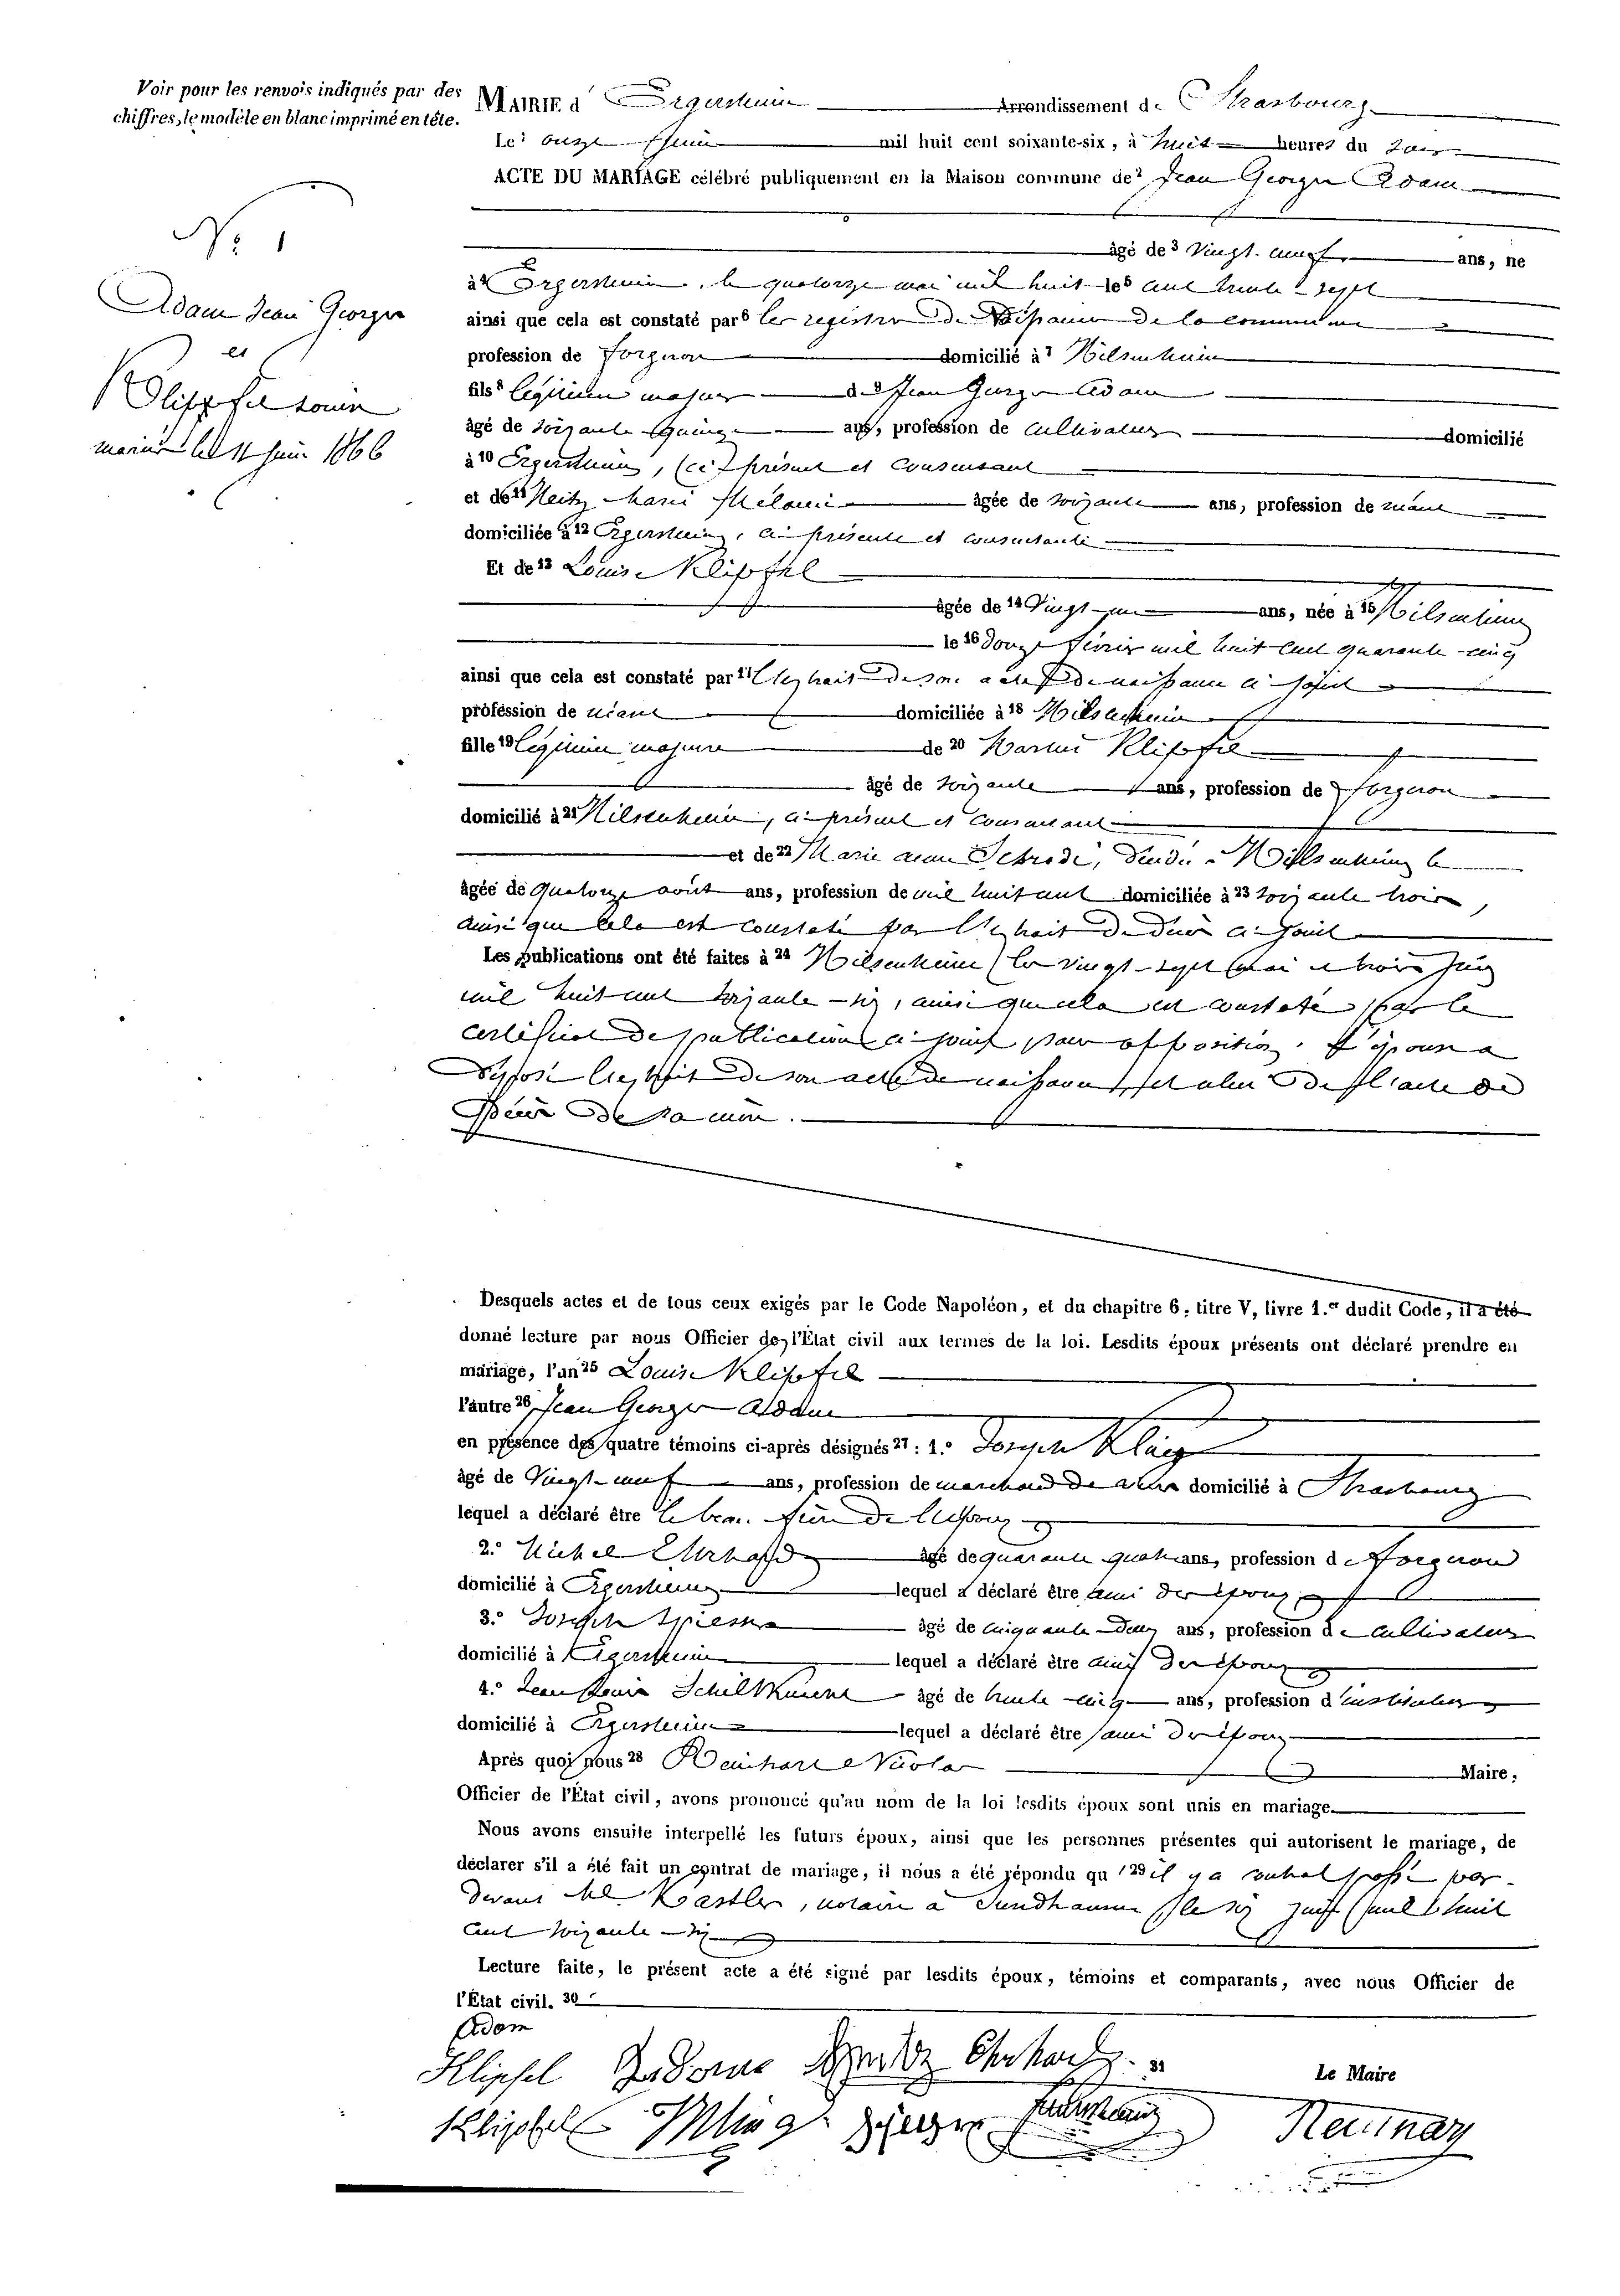 Voir pour les renvois indiqués par des
chiffres, le modèle en blanc imprimé en tête.
MAIRIE d' Ergersheim Arrondissement de Strasbourg
Le¹ onze Juin mil huit cent soixante-six, à huit heures du soir
ACTE DU MARIAGE célébré publiquement en la Maison commune de² Jean George Adam
N° 1
Adam Jean George
et
Klippfel Louise
mariés le 11 Juin 1866
âgé de³ Vingt-neuf ans, né
à⁴ Ergersheim, le quatorze mai mil huit le⁵ cent trente-sept
ainsi que cela est constaté par⁶ les registres de naissance de la commune
profession de forgeron domicilié à⁷ Hilsenheim
fils⁸ légitime majeur de⁹ Jean George Adam
âgé de soixante-quinze ans, profession de cultivateur domicilié
à¹⁰ Ergersheim, ci-présent et consentant
et de¹¹ Neitz Marie Mélanie âgée de soixante ans, profession de néant
domiciliée à¹² Ergersheim, ci-présente et consentante
Et de¹³ Louise Klipfel
âgée de¹⁴ Vingt-un ans, née à¹⁵ Hilsenheim
le¹⁶ douze février mil huit cent quarante-cinq
ainsi que cela est constaté par¹⁷ l'extrait de son acte de naissance ci-joint
profession de néant domiciliée à¹⁸ Hilsenheim
fille¹⁹ légitime majeure de²⁰ Martin Klipfel
âgé de soixante ans, profession de forgeron
domicilié à²¹ Hilsenheim, ci-présent et consentant
et de²² Marie anne Schrodi, décédée à Hilsenheim le
âgée de quatorze août ans, profession de mil huit cent domiciliée à²³ soixante trois,
ainsi que cela est constaté par l'extrait de décès ci-joint
Les publications ont été faites à²⁴ Hilsenheim les vingt-sept mai et trois Juin
mil huit cent soixante-six, ainsi que cela est constaté par le
certificat de publications ci-joint sans opposition. L'épouse a
déposé l'extrait de son acte de naissance, et celui de l'acte de
décès de sa mère.
Desquels actes et de tous ceux exigés par le Code Napoléon, et du chapitre 6, titre V, livre 1.er dudit Code, il a été
donné lecture par nous Officier de l'État civil aux termes de la loi. Lesdits époux présents ont déclaré prendre en
mariage, l'un²⁵ Louise Klipfel
l'autre²⁶ Jean George Adam
en présence des quatre témoins ci-après désignés²⁷ : 1.° Joseph Kling
âgé de Vingt-neuf ans, profession de marchand de domicilié à Strasbourg
lequel a déclaré être le beau-frère de l'époux
2.° Michel Ehrhard âgé de quarante quatre ans, profession de forgeron
domicilié à Ergersheim lequel a déclaré être ami des époux
3.° Joseph Spiesser âgé de cinquante-deux ans, profession de cultivateur
domicilié à Ergersheim lequel a déclaré être ami des époux
4.° Jean Louis âgé de trente-cinq ans, profession d'instituteur
domicilié à Ergersheim lequel a déclaré être ami des époux
Après quoi nous²⁸ Nicolas Maire,
Officier de l'État civil, avons prononcé qu'au nom de la loi lesdits époux sont unis en mariage.
Nous avons ensuite interpellé les futurs époux, ainsi que les personnes présentes qui autorisent le mariage, de
déclarer s'il a été fait un contrat de mariage, il nous a été répondu qu'²⁹il y a contrat passé par-
devant Me Kastler, notaire à Sundhausen le six juin mil huit
cent soixante-six
Lecture faite, le présent acte a été signé par lesdits époux, témoins et comparants, avec nous Officier de
l'État civil. 30
Adam
Klipfel Ehrhard. 31 Le Maire
Klipfel Kling